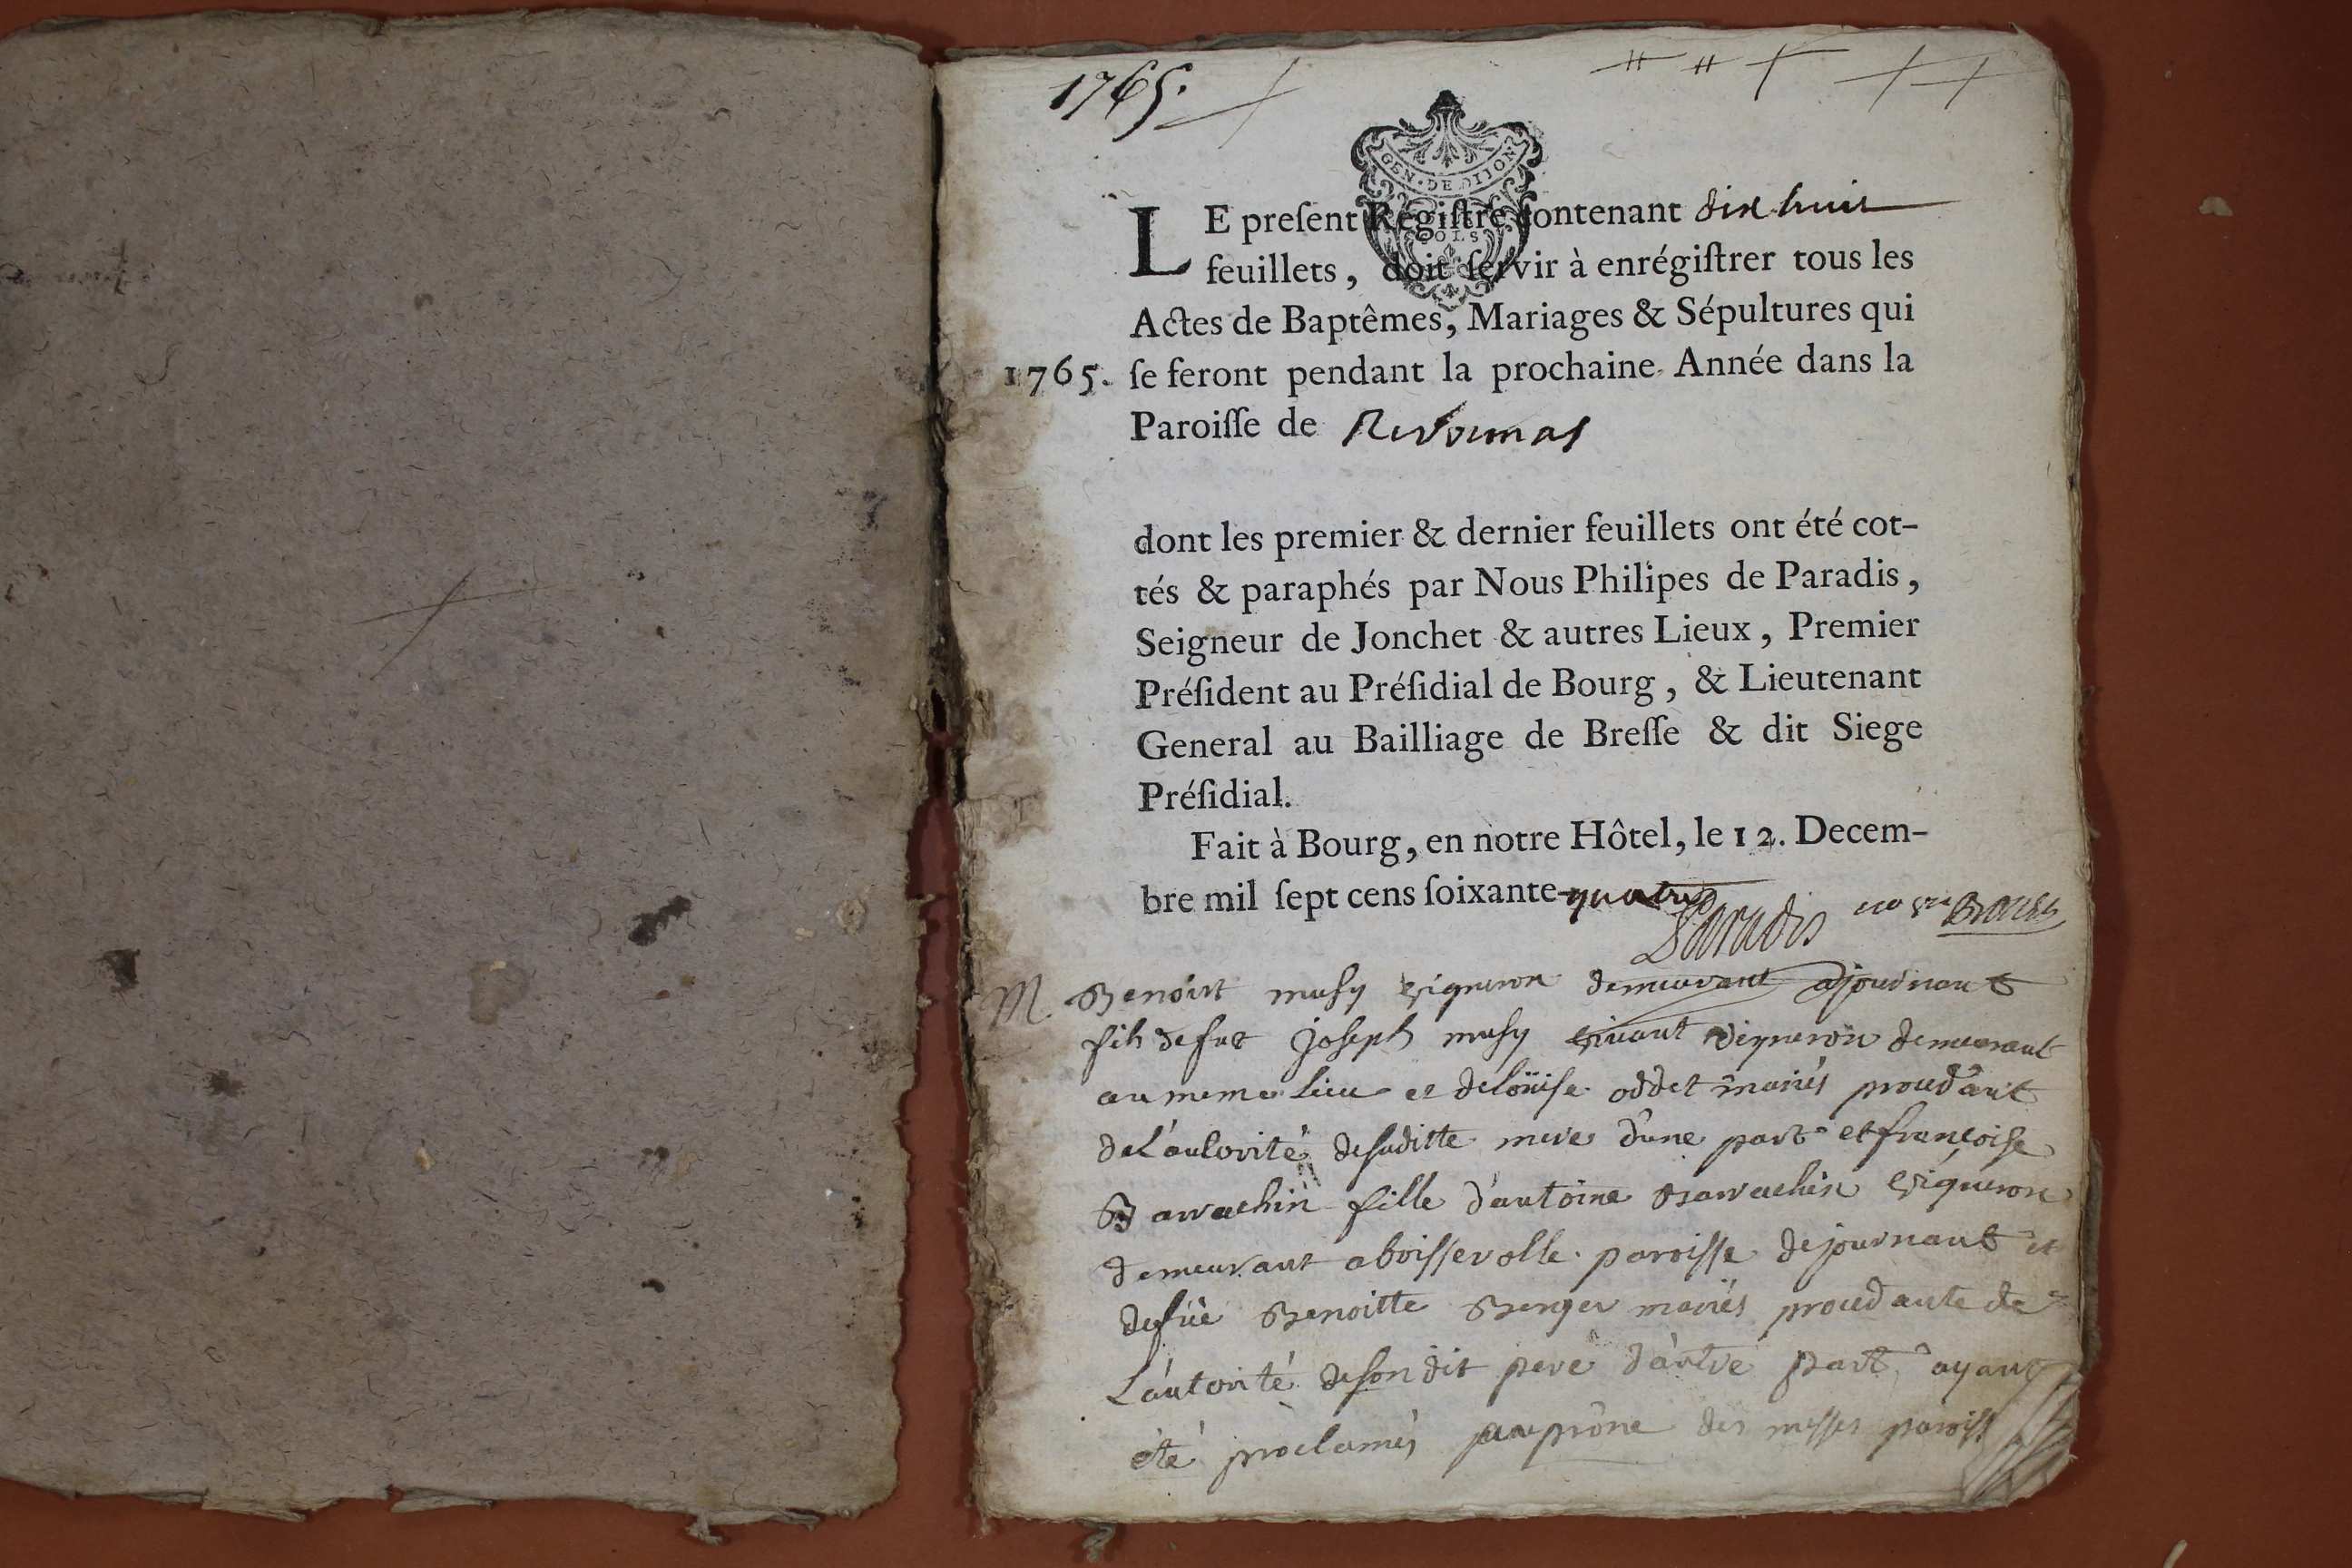 1765.
GEN. DE DIJON
SOLS
LE preſent Regiſtre contenant dix huit
feuillets, doit ſervir à enrégiſtrer tous les
Actes de Baptêmes, Mariages & Sépultures qui
1765. ſe feront pendant la prochaine Année dans la
Paroiſſe de Revonnas
dont les premier & dernier feuillets ont été cot-
tés & paraphés par Nous Philipes de Paradis,
Seigneur de Jonchet & autres Lieux, Premier
Préſident au Préſidial de Bourg, & Lieutenant
General au Bailliage de Breſſe & dit Siege
Préſidial.
Fait à Bourg, en notre Hôtel, le 12. Decem-
bre mil ſept cens ſoixante-quatre
Paradis
M. Benoirt musy vigneron demeurant ajournant
fils defut joseph musy vivant vigneron demeurant
au meme lieu et deloüise oddet mariés procedant
de l'autorité desaditte mere d'une part et françoise
Barrachin fille d'antoine Barrachin vigneron
demeurant aboisserolle paroisse dejournant et
defüe Benoitte Berger mariés procedante de
L'autorité deson dit pere d'autre part ayant
été proclamés au prône des messes paroiss